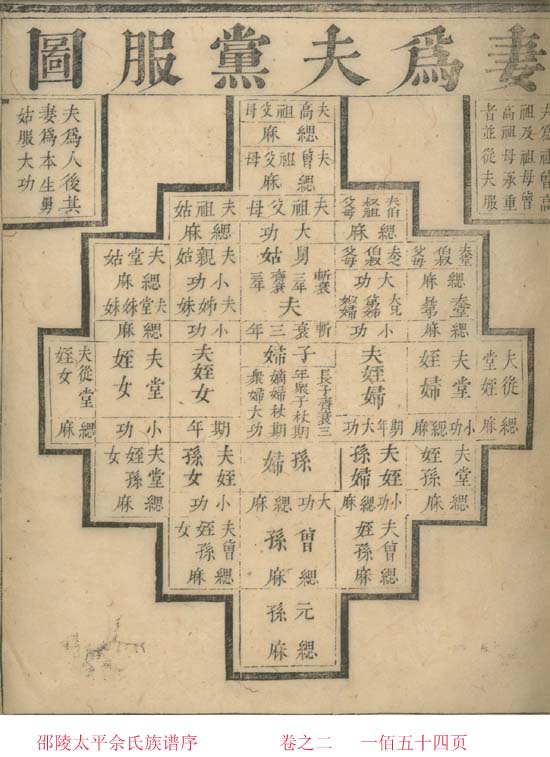 妻為夫黨服圖
夫為祖曾高
祖及祖母曾
高祖母承重
者並從夫服
夫為人後其
妻為本生舅
姑服大功
夫高祖父母
緦麻
夫曾祖父母
緦麻
夫伯叔祖父母
緦麻
夫祖父母
大功
夫祖姑
緦麻
夫堂伯叔父母
緦麻
夫之伯叔父母
大功
舅姑
斬衰三年
齊衰三年
夫親姑
小功
夫堂姑
緦麻
緦麻
小功
夫
斬衰三年
夫姊妹
小功
夫堂姊妹
緦麻
夫從堂姪
緦麻
夫堂姪婦
小功緦麻
夫姪婦
期年大功
子婦
長子齊衰三
年眾子杖期
嫡婦杖期
眾婦大功
夫姪女
期年
夫堂姪女
小功
夫從堂姪女
緦麻
夫堂姪孫
緦麻
夫姪孫婦
小功緦麻
孫婦
大功緦麻
夫姪孫女
小功
夫堂姪孫女
緦麻
夫曾姪孫
緦麻
曾孫
緦麻
夫曾姪孫女
緦麻
元孫
緦麻
邵陵太平佘氏族谱序 卷之二 一佰五十四页